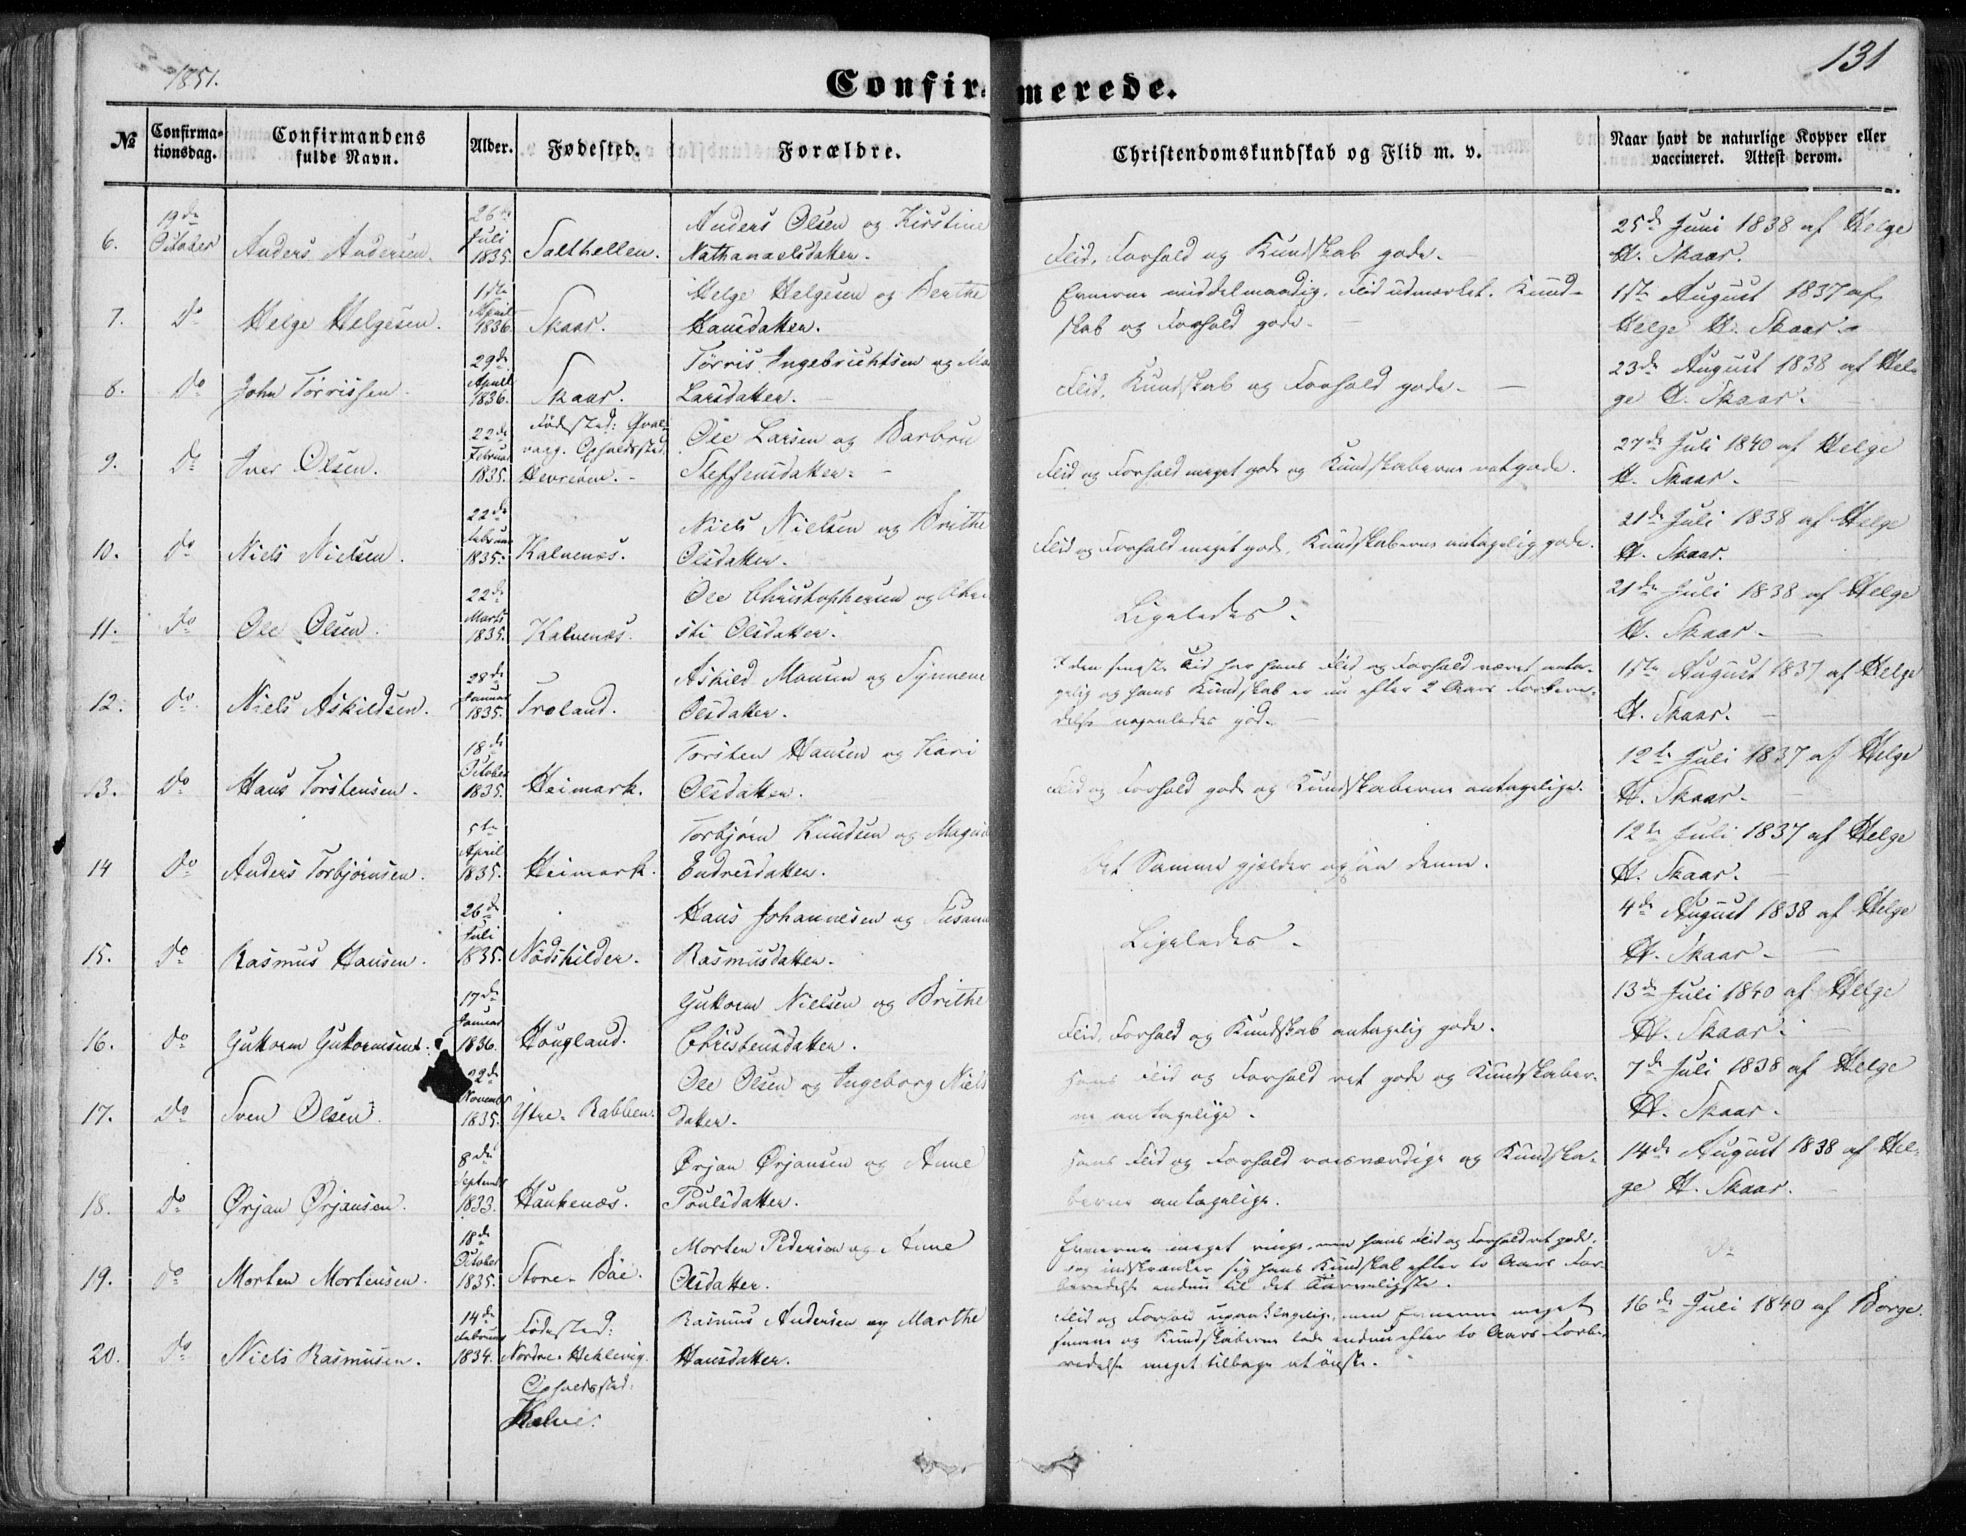 1851.
131
Confirmerede.
№
Confirma-
tionsdag.
Confirmandens
fulde Navn.
Alder.
Fødested.
Forældre.
Christendomskundskab og Flid m. v.
Naar havt de naturlige Kopper eller
vaccineret. Attest derom.
6.
19de
October
Anders Andersen.
26de
Juli
1835
Salthellen.
Anders Olsen og Kirstine
Nathanaelsdatter.
Flid, Forhold og Kundskab gode.
25de Juni 1838 af Helge
H. Skaar.
7.
Do
Helge Helgesen.
1ste
April
1836.
Skaar.
Helge Helgesen og Berthe
Hansdatter.
Evnerne middelmaadig. Flid udmærket. Kund-
skab og Forhold gode.
1ste August 1837 af
Helge H. Skaar.
8.
Do
John Torrissen.
29de
April
1836.
Skaar.
Torris Ingebrichtsen og
Larsdatter.
Flid, Kundskab og Forhold gode.
23de August 1838 af Hel-
ge H. Skaar.
9.
Do
Iver Olsen.
22de
Februar
1835.
Fødested:
Opholdssted
Ole Larsen og Barbru
Steffensdatter.
Flid og Forhold meget gode og Kundskaberne ret gode.
27de Juli 1840 af Helge
H. Skaar.
10.
Do
Niels Nielsen.
22de
Februar
1835.
Kalvenæs.
Niels Nielsen og Brithe
Olsdatter.
Flid og Forhold meget gode, Kundskaberne antagelig gode.
21de Juli 1838 af Helge
H. Skaar.
11.
Do
Ole Olsen.
22de
Marts
1835.
Kalvenæs.
Ole Christophersen og Chri
sti Olsdatter.
Ligeledes.
21de Juli 1838 af Helge
H. Skaar.
12.
Do
Niels Askildsen.
28de
Januar
1835.
Troland.
Askild Monsen og Synneve
Olsdatter.
I den seneste Tid har hans Flid og Forhold været anta-
gelig og hans Kundskab er nu efter 2 Aars Forbere-
delse nogenledes god.
1ste August 1837 af Helge
H. Skaar.
13.
Do
Hans Torstensen.
18de
October
1835.
Heimark.
Torsten Hansen og Kari
Olsdatter.
Flid og Forhold gode og Kundskaberne antagelige.
12te Juli 1837 af Helge
H. Skaar.
14
Do
Anders Torbjørnsen.
5te
April
1835.
Heimark.
Torbjørn Knudsen og
Endresdatter.
Det Samme gjælder ogsaa denne.
12te Juli 1837 af Helge
H. Skaar.
15.
Do
Rasmus Hansen.
26de
Juli
1835.
Nødskilder.
Hans Johannesen og Susann
Rasmusdatter.
Ligeledes.
4de August 1838 af Helge
H. Skaar.
16.
Do
Guttorm Guttormsen.
17de
Januar
1836.
Hougland.
Guttorm Nielsen og Brithe
Christensdatter.
Flid, Forhold og Kundskab antagelig gode.
13de Juli 1840 af Helge
H. Skaar.
17.
Do
Sven Olsen.
22de
Novembr
1835.
Ytre-Rabben.
Ole Olsen og Ingeborg Niels
datter.
Hans Flid og Forhold ret gode og Kundskaber-
ne antagelige.
7de Juli 1838 af Helge
H. Skaar.
18.
Do
Ørjan Ørjansen.
8de
Septembr
1833.
Haukenæs.
Ørjan Ørjansen og Anne
Poulsdatter.
Hans Flid og Forhold roesværdige og Kundska-
berne antagelige.
14de August 1838 af Hel-
ge H. Skaar.
19.
Do
Morten Mortensen.
18de
October
1835.
Store-Bøe.
Morten Pedersen og Anne
Olsdatter.
Evnerne meget ringe, men hans Flid og Forhold ret gode,
og indskrænker sig hans Kundskab efter to Aars For-
beredelse endnu til det Tarveligste.
Do
20.
Do
Niels Rasmusen.
14de
Februar
1834.
Fødested:
Nordre-Heklevig.
Opholdssted:
Rasmus Andersen og Marthe
Hansdatter.
Flid og Forhold upaaklagelige, men Evnerne meget
og Kundskaberne lade endnu efter to Aars Forbe-
redelse meget tilbage at ønske.
16de Juli 1840 af Borge